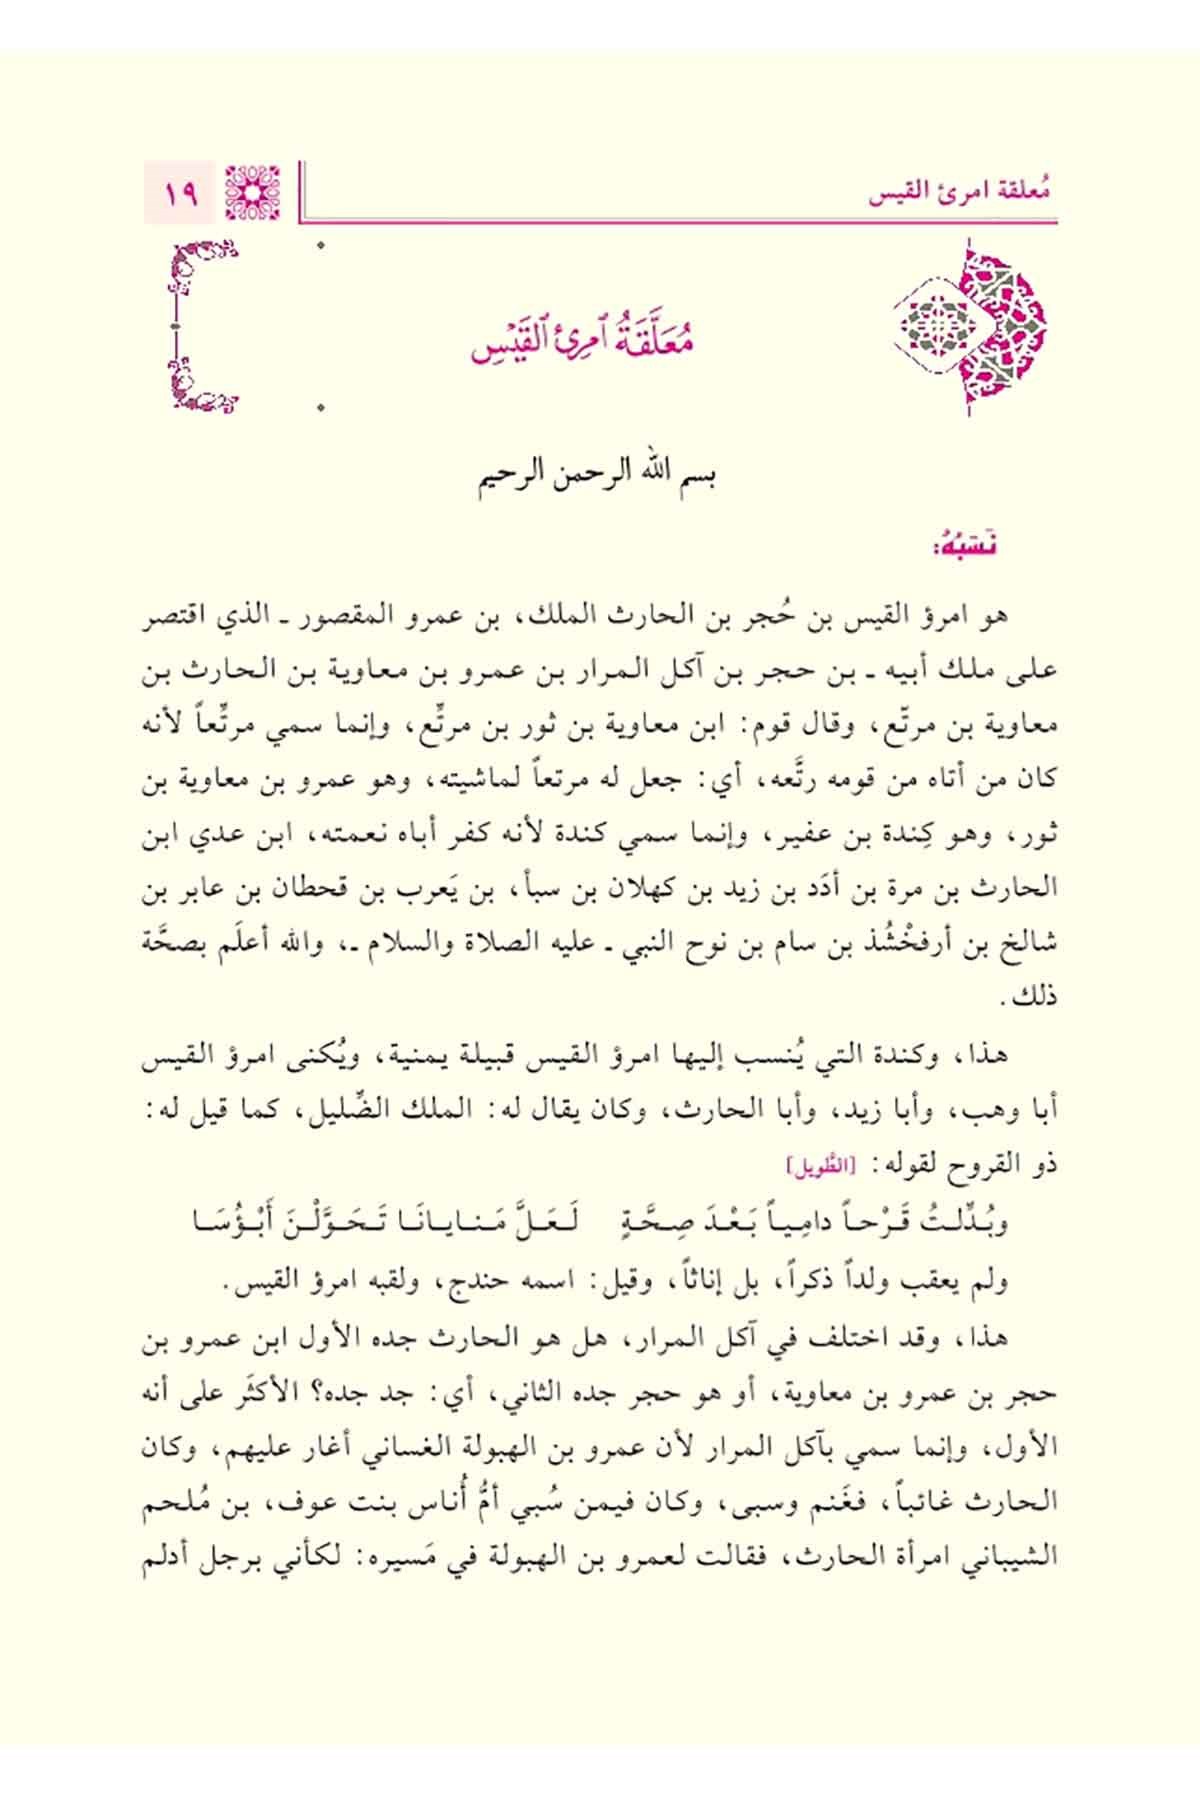 مُعلقة امرئ القيس
١٩
مُعَلَّقَةُ ٱمرِئ ٱلقَيْسِ
بسم الله الرحمن الرحيم
نَسَبُهُ:
هو امرؤ القيس بن حُجر بن الحارث الملك، بن عمرو المقصور ـ الذي اقتصر
على ملك أبيه ـ بن حجر بن آكل المرار بن عمرو بن معاوية بن الحارث بن
معاوية بن مرتّع، وقال قوم: ابن معاوية بن ثور بن مرتِّع، وإنما سمي مرتِّعاً لأنه
كان من أتاه من قومه رتَّعه، أي: جعل له مرتعاً لماشيته، وهو عمرو بن معاوية بن
ثور، وهو كِندة بن عفير، وإنما سمي كندة لأنه كفر أباه نعمته، ابن عدي ابن
الحارث بن مرة بن أدَد بن زيد بن كهلان بن سبأ، بن يَعرب بن قحطان بن عابر بن
شالخ بن أرفخْشُذ بن سام بن نوح النبي ـ عليه الصلاة والسلام ـ، والله أعلَم بصحَّة
ذلك.
هذا، وكندة التي يُنسب إليها امرؤ القيس قبيلة يمنية، ويُكنى امرؤ القيس
أبا وهب، وأبا زيد، وأبا الحارث، وكان يقال له: الملك الضِّليل، كما قيل له:
ذو القروح لقوله: [الطَّويل]
وبُدِّلتُ قَرْحاً دامِياً بَعْدَ صِحَّةٍ لَعَلَّ مَنايانَا تَحَوَّلْنَ أَبْؤُسَا
ولم يعقب ولداً ذكراً، بل إناثاً، وقيل: اسمه حندج، ولقبه امرؤ القيس.
هذا، وقد اختلف في آكل المرار، هل هو الحارث جده الأول ابن عمرو بن
حجر بن عمرو بن معاوية، أو هو حجر جده الثاني، أي: جد جده؟ الأكثَر على أنه
الأول، وإنما سمي بآكل المرار لأن عمرو بن الهبولة الغساني أغار عليهم، وكان
الحارث غائباً، فغَنم وسبى، وكان فيمن سُبي أمُّ أُناس بنت عوف، بن مُلحم
الشيباني امرأة الحارث، فقالت لعمرو بن الهبولة في مَسيره: لكأني برجل أدلم